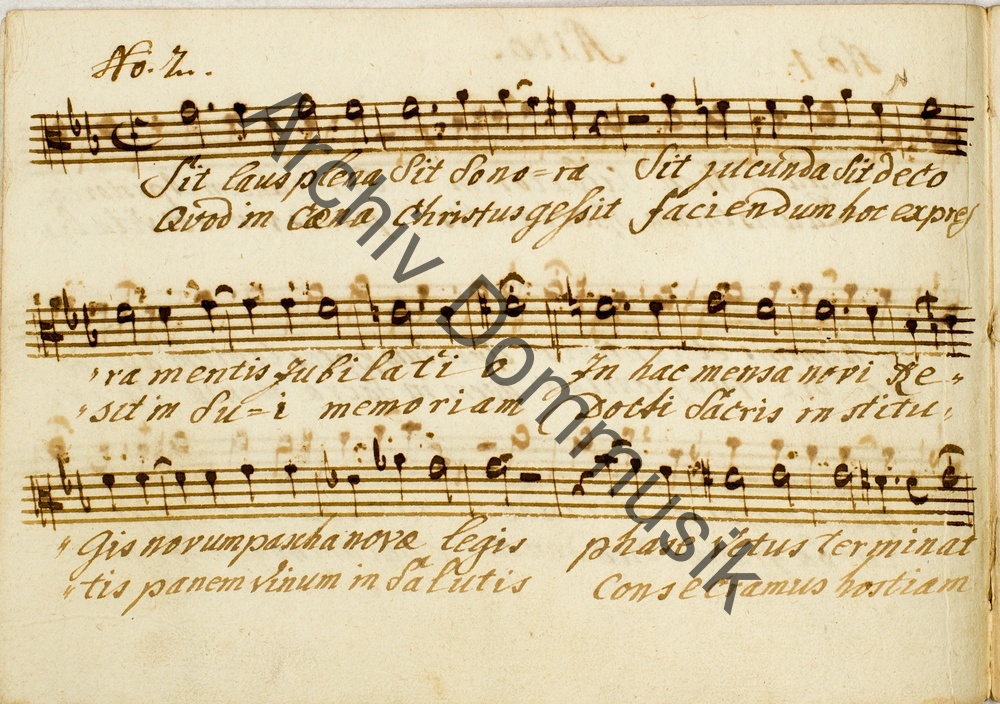 No. 2.
Sit laus plena Sit Sono=ra Sit jucunda Sit deco
Quod in Cœna Christus gessit faciendum hoc expres
"ra mentis Jubilati o In hac mensa novi Re"
"sit in Su=i memoriam Docti Sacris in stitu"
"Gis novum pascha novæ legis phase vetus terminat
"tis panem vinum in Salutis Consecramus hostiam
Archiv Dommusik